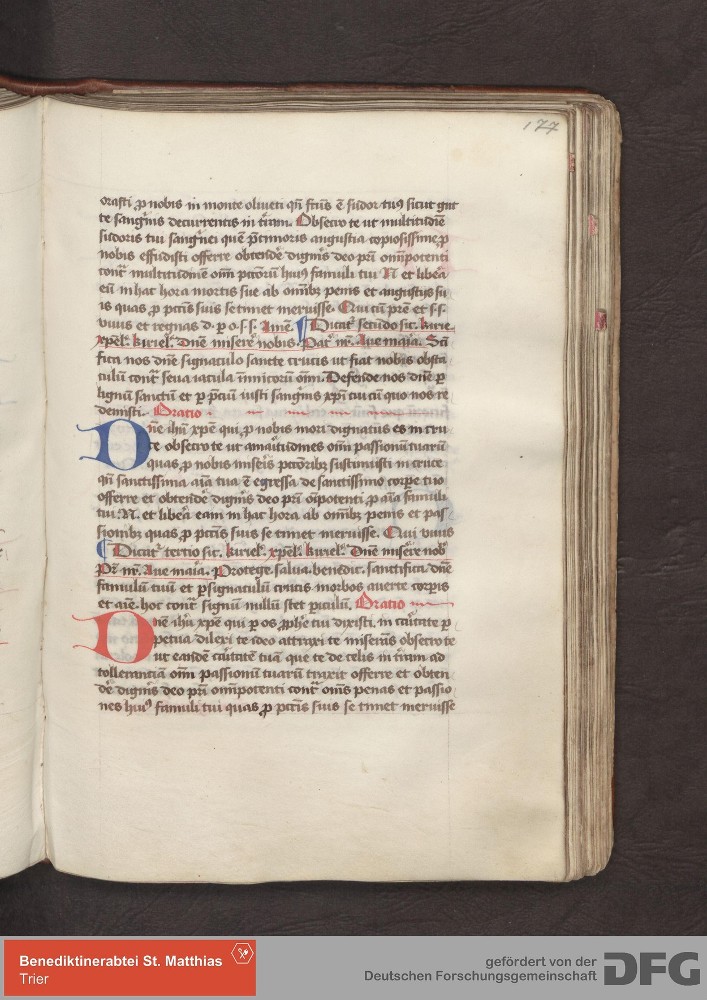 177
orasti ꝓ nobis in monte oliueti qn̄ fc̄us ē sudor tuꝰ sicut gut
te sangͥnis decurrentis in t̄ram. Obsecro te ut multitudīē
sudoris tui sangͥnei quē p̄timoris angustia copiosissime ꝓ
nobis effudisti offerre obtendē digneris deo pr̄i om̄ipotenti
contͣ multitudinē om̄ pctōrū huiꝰ famuli tui N et liberͣ
eū in hac hora mortis sue ab om̄ibꝫ penis et angustijs su
is quas ꝓ pctīs suis se timet meruisse. Qui cū prē et s.s.
viuis et regnas d. ꝑ o.s.s. Amē. Dicatͬ secūdo sic. kirie
xp̄el. kiriel. Dn̄e miserͤ nobis. Patͬ nr̄. Aue maͥa. Sc̄i
fica nos dn̄e signaculo sancte crucis ut fiat nobis obsta
culū contͣ seua iacula inimicorū om̄. Defende nos dn̄e ꝑ
lignū sanctū et ꝑ p̄ciū iusti sangͥnis xp̄i tui cū quo nos re
demisti. Oratio
Dn̄e ih̄u xp̄e qui ꝓ nobis mori dignatus es in cru
ce obsecro te ut amaͥtudines om̄ passionū tuarū
quas ꝓ nobis miseͥs pctōribꝫ sustinuisti in cruce
qn̄ sanctissima aīa tua ē egressa de sanctissimo corꝑe tuo
offerre et obtendē digneris deo pr̄i om̄ipotenti ꝓ aīa famuli
tui N. et liberͣ eam in hac hora ab om̄ibꝫ penis et pas
sionibꝫ quas ꝓ pctīs suis se timet meruisse. Qui viuis
Dicatͬ tertio sic. kiriel. xp̄el. kiriel. Dn̄e miserͤ nob
Pr̄ nr̄. Aue maͥa. Protege. salua. benedic. sanctifica dn̄e
famulū tuū et ꝑ signaculū crucis morbos auerte corꝑis
et aīe. hoc contͣ signum nullū stet ꝑiculū. Oratio
Dn̄e ih̄u xp̄e qui ꝑ os ꝓphē tui dixisti. in caͥtate ꝑ
petua dilexi te ideo attraxi te miserans obsecro te
ut eandē caͥtatē tuā que te de celis in t̄ram ad
tollerantiā om̄ passionū tuarū traxit offerre et obten
dē digneris deo pr̄i om̄ipotenti contͣ om̄s penas et passio
nes huiꝰ famuli tui quas ꝓ pctīs suis se timet meruisse
Benediktinerabtei St. Matthias
Trier
gefördert von der
Deutschen Forschungsgemeinschaft
DFG